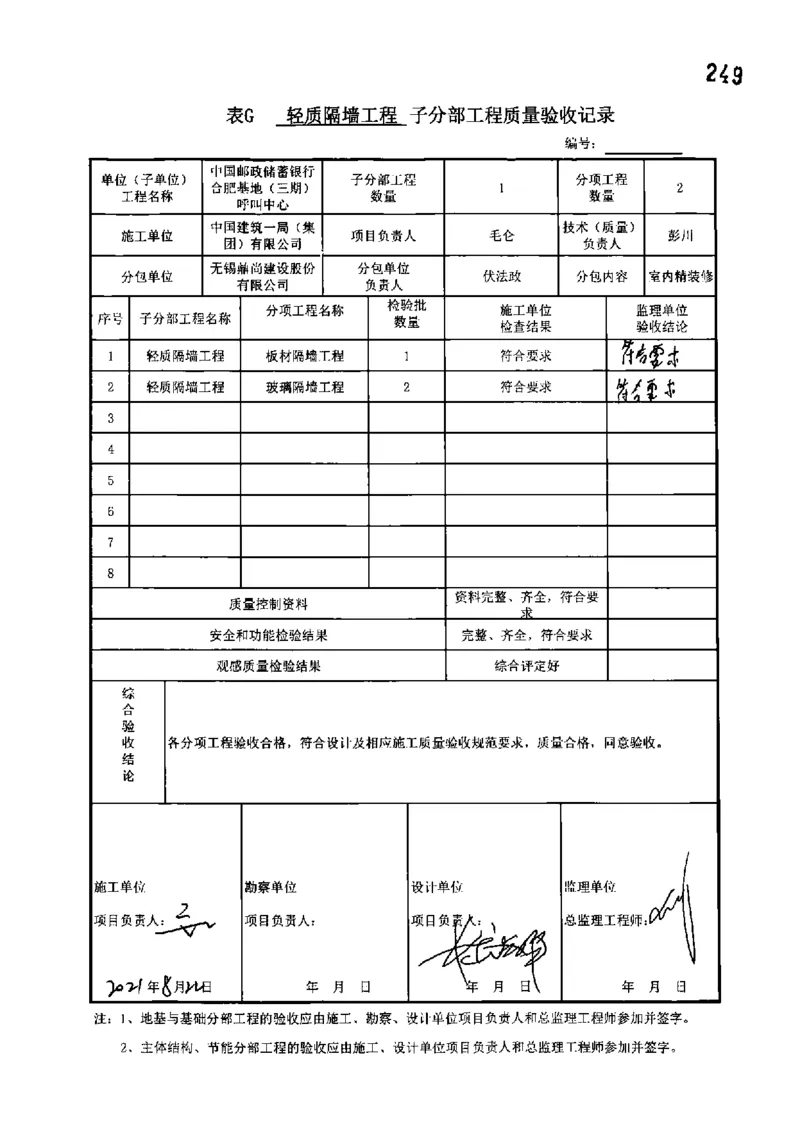 249
表G 轻质隔墙工程 子分部工程质量验收记录
编号：
单位（子单位）
工程名称
中国邮政储蓄银行
合肥基地（三期）
呼叫中心
子分部工程
数量
1
分项工程
数量
2
施工单位
中国建筑一局（集
团）有限公司
项目负责人
毛仑
技术（质量）
负责人
彭川
分包单位
无锡赫尚建设股份
有限公司
分包单位
负责人
伏法政
分包内容
室内精装修
序号
子分部工程名称
分项工程名称
检验批
数量
施工单位
检查结果
监理单位
验收结论
1 轻质隔墙工程 板材隔墙工程 1 符合要求 符合要求
2 轻质隔墙工程 玻璃隔墙工程 2 符合要求 符合要求
3
4
5
6
7
8
质量控制资料
资料完整、齐全，符合要
求
安全和功能检验结果 完整、齐全，符合要求
观感质量检验结果 综合评定好
综
合
验
收
结
论
各分项工程验收合格，符合设计及相应施工质量验收规范要求，质量合格，同意验收。
施工单位 勘察单位 设计单位 监理单位
项目负责人： 项目负责人： 项目负责人： 总监理工程师：
2021年8月22日 年 月 日 年 月 日 年 月 日
注：1、地基与基础分部工程的验收应由施工、勘察、设计单位项目负责人和总监理工程师参加并签字。
2、主体结构、节能分部工程的验收应由施工、设计单位项目负责人和总监理工程师参加并签字。